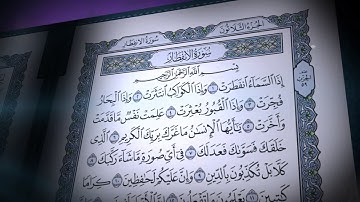 الجزء الثلاثون
سورة الانفطار
سورة الانفطار
بسم الله الرحمن الرحيم
إِذَا ٱلسَّمَآءُ ٱنفَطَرَتْ ١ وَإِذَا ٱلْكَوَاكِبُ ٱنتَثَرَتْ ٢ وَإِذَا ٱلْبِحَارُ
فُجِّرَتْ ٣ وَإِذَا ٱلْقُبُورُ بُعْثِرَتْ ٤ عَلِمَتْ نَفْسٌ مَّا قَدَّمَتْ
وَأَخَّرَتْ ٥ يَٰٓأَيُّهَا ٱلْإِنسَٰنُ مَا غَرَّكَ بِرَبِّكَ ٱلْكَرِيمِ ٦ ٱلَّذِى
خَلَقَكَ فَسَوَّىٰكَ فَعَدَلَكَ ٧ فِىٓ أَىِّ صُورَةٍ مَّا شَآءَ رَكَّبَكَ ٨
كَلَّا بَلْ تُكَذِّبُونَ بِٱلدِّينِ ٩ وَإِنَّ عَلَيْكُمْ لَحَٰفِظِينَ ١٠ كِرَامًا
كَٰتِبِينَ ١١ يَعْلَمُونَ مَا تَفْعَلُونَ